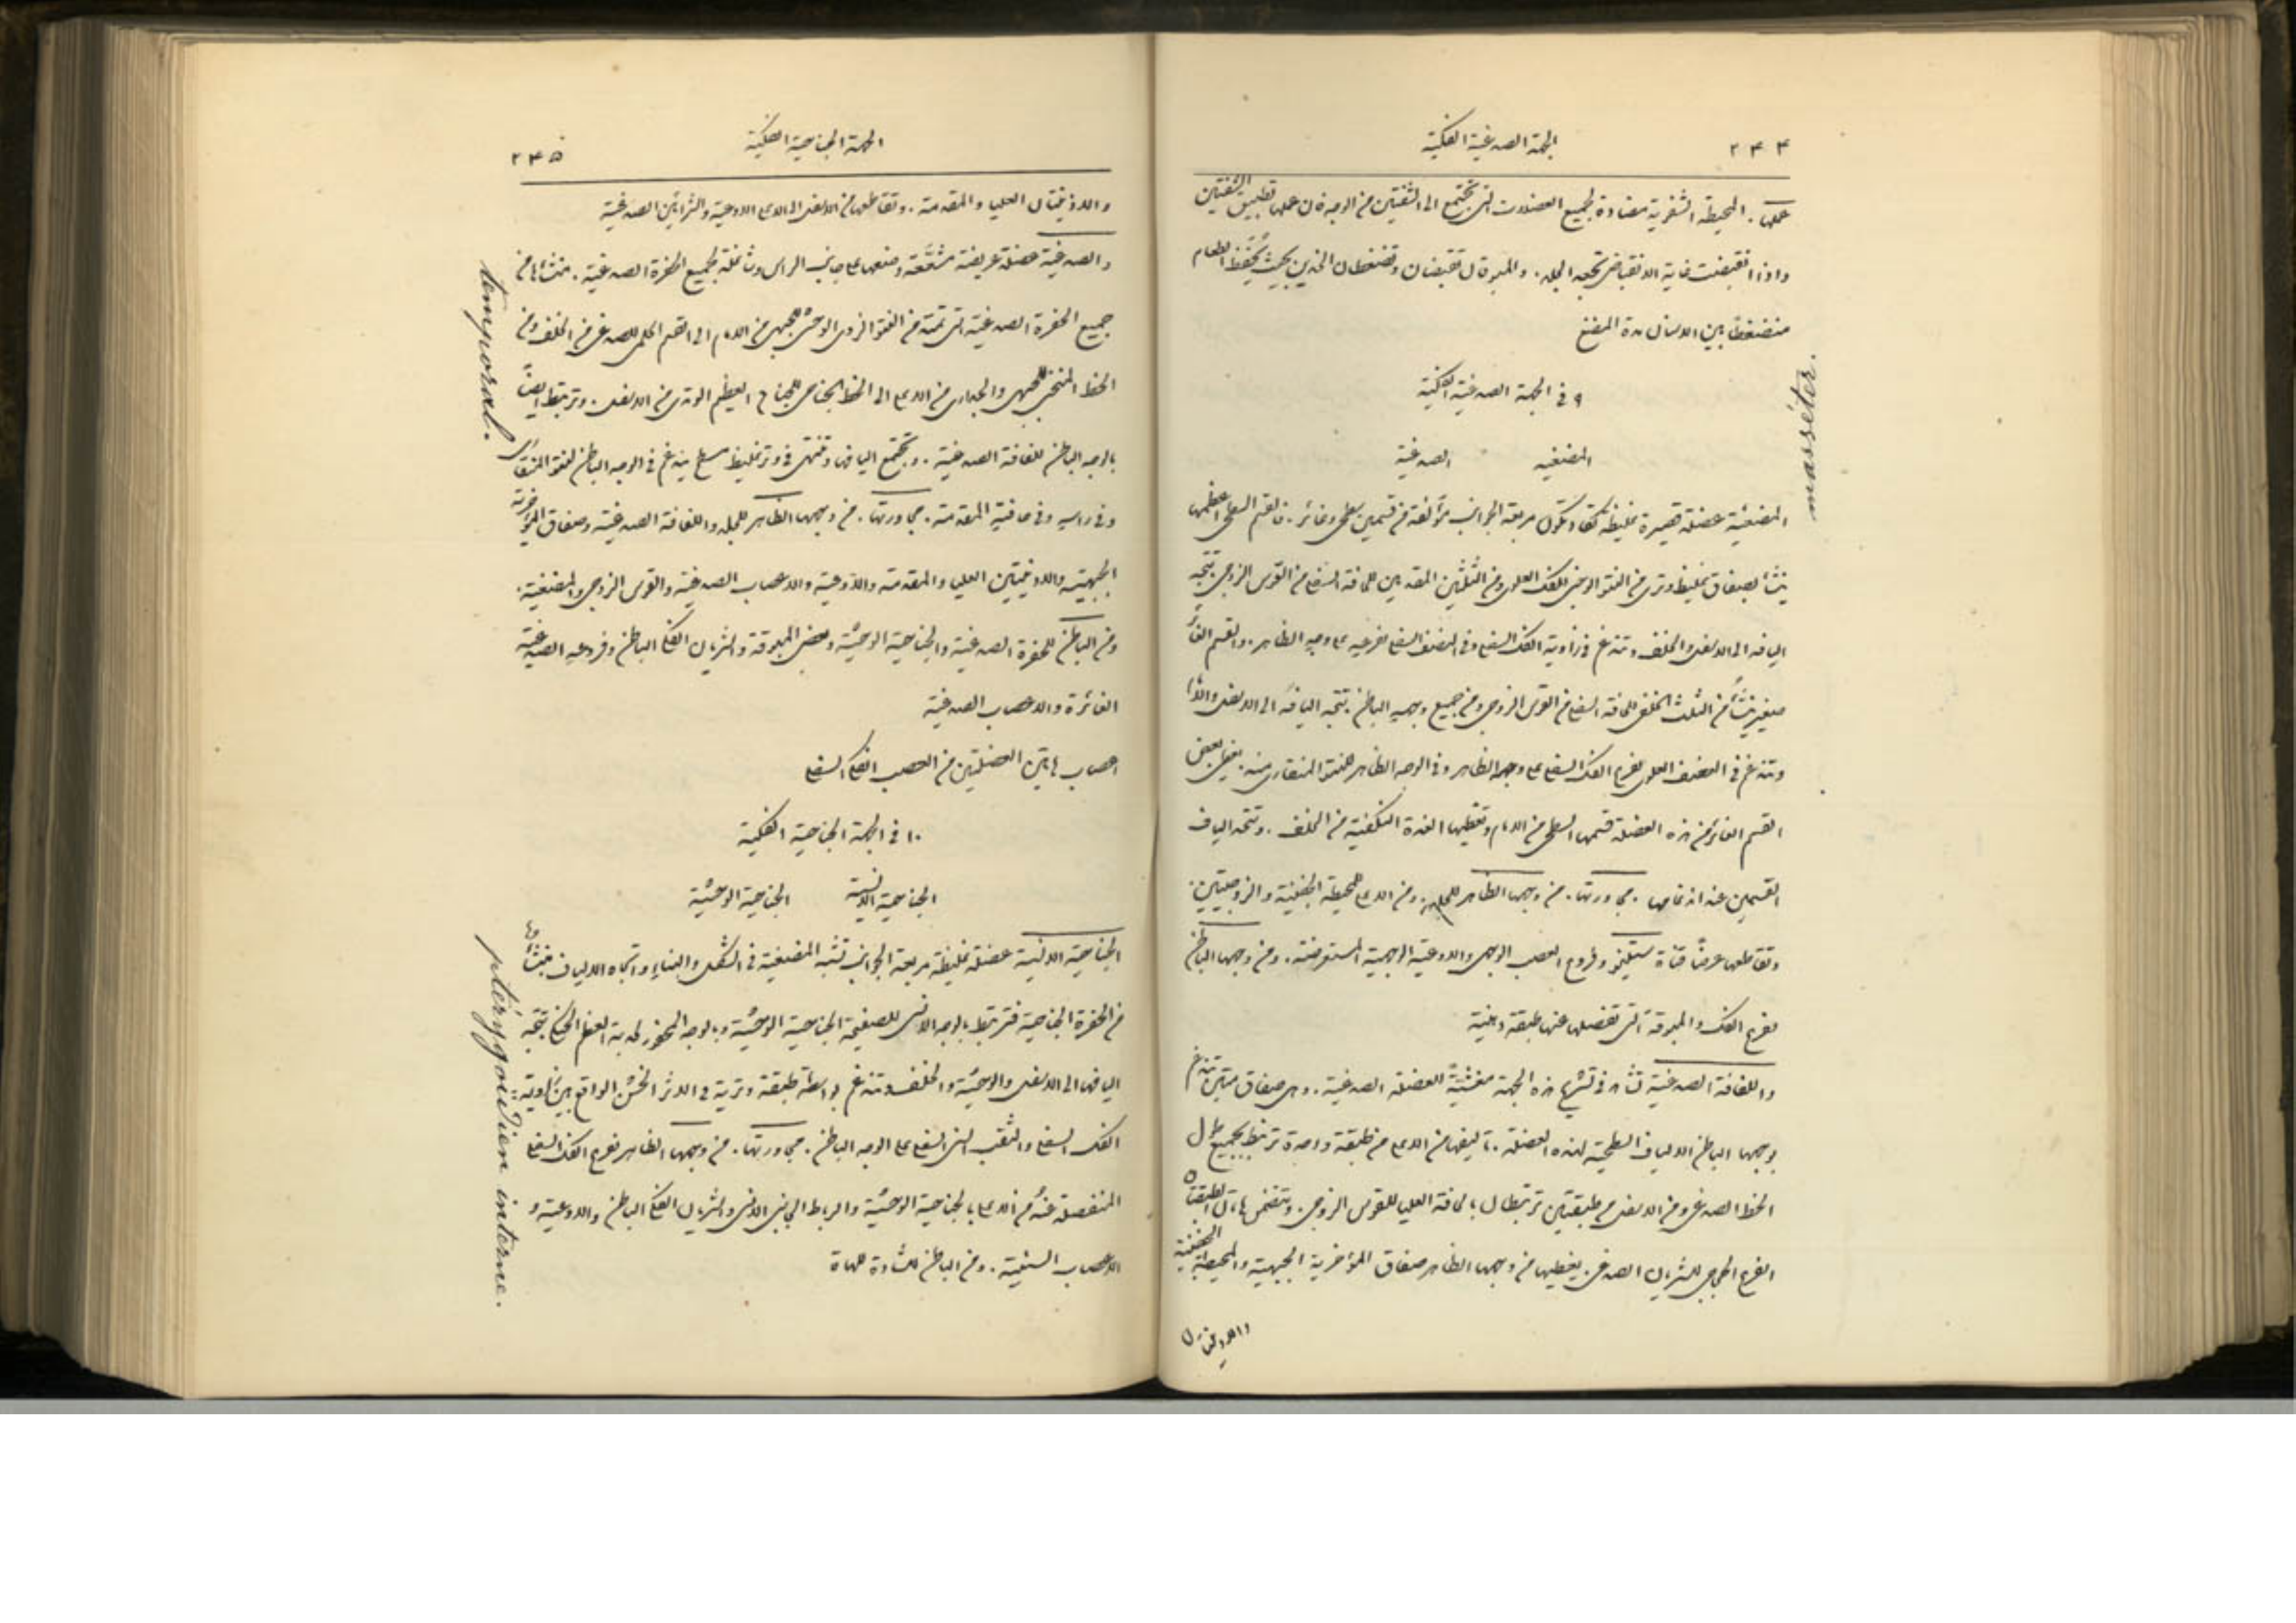 ٢٤٤
الجهة الصدغية الفكية
عملها . المحيطة الشفوية مضادة لجميع العضلات التي تجتمع الى الشفتين من الوجه فان عملها تطبيق الشفتين
واذا انقبضت غاية الانقباض تجعد الجلد . والمبوقان تنقبضان وتضغطان الخدين بحيث يُحفظ الطعام
منضغطاً بين الاسنان مدة المضغ
٩ في الجهة الصدغية الفكية
المضغية الصدغية
المضغية عضلة قصيرة غليظة تكاد تكون مربعة الجوانب مؤلفة من قسمين سطحي وغائر . فالقسم السطحي اعظمها
ينشأ بصفاق غليظ وتري من النتو الوجني للفك العلوي ومن الثلثين المقدمين للحافة السفلى من القوس الزوجي . تتجه
اليافه الى الاسفل والخلف وتندغم في زاوية الفك السفلي وفي النصف السفلي لفرعه على وجهه الظاهر . والقسم الغائر
صغير ينشأ من الثلث الخلفي للحافة السفلى من القوس الزوجي ومن جميع وجهه الباطن . تتجه اليافه الى الاسفل والامام
وتندغم في النصف العلوي لفرع الفك السفلي على وجهه الظاهر وفي الوجه الظاهر للنتو المنقاري منه . يغطي بعض
القسم الغائر من هذه العضلة قسمها السطحي من الامام وتغطيها الغدة النكفية من الخلف . وتتحد الياف
القسمين عند اندغامها . مجاورتها . من وجهها الظاهر للجلد ومن الاعلى للمحيطة الجفنية والزوجيتين
وتقاطعها عرضاً قناة ستينو وفروع العصب الوجهي والاوعية الوجهية المستعرضة . ومن وجهها الباطن
لفرع الفك والمبوقة التي تفصلها عنها طبقة دهنية
واللفافة الصدغية تشاهد في تشريح هذه الجهة مغشّيةً للعضلة الصدغية . وهي صفاق متين تندغم
بوجهها الباطن الالياف السطحية لهذه العضلة . تاليفها من الاعلى من طبقة واحدة ترتبط بجميع طول
الخط الصدغي ومن الاسفل من طبقتين ترتبطان بالحافة العليا للقوس الزوجي . وتتضمن هاتان الطبقتان
الفرع الحجاجي للشريان الصدغي . يغطيها من وجهها الظاهر صفاق المؤخرية الجبهية والمحيطة الجفنية
والاذينتان
masséter.
٢٤٥
الجهة الجناحية الفكية
والاذينتان العليا والمقدمة . وتقاطعها من الاسفل الى الاعلى الاوعية والشرايين الصدغية
والصدغية عضلة عريضة مشعّعة وضعها على جانب الراس وشاغلة لجميع الحفرة الصدغية . منشأها من
جميع الحفرة الصدغية التي تمتد من النتو الزوي الوحشي للجبهي من الامام الى القسم الحلمي للصدغي من الخلف ومن
الخط المنحني للجبهي والجداري من الاعلى الى الخط الجناحي للجناح العظيم الوتدي من الاسفل . وترتبط ايضاً
بالوجه الباطن للفافة الصدغية . وتجتمع اليافها وتنتهي في وتر غليظ مسطح يندغم في الوجه الباطن للنتو المنقاري
وفي راسه وفي حافته المقدمة . مجاورتها . من وجهها الظاهر للجلد واللفافة الصدغية وصفاق المؤخرية
الجبهية والاذينيتين العليا والمقدمة والاوعية والاعصاب الصدغية والقوس الزوجي والمضغية .
ومن الباطن للحفرة الصدغية والجناحية الوحشية وبعض المبوقة والشريان الفكي الباطن وفروعه الصدغية
الغائرة والاعصاب الصدغية
اعصاب هاتين العضلتين من العصب الفكي السفلي
١٠ في الجهة الجناحية الفكية
الجناحية الانسية الجناحية الوحشية
الجناحية الانسية عضلة غليظة مربعة الجوانب تشبه المضغية في الشكل والبناء واتجاه الالياف . منشأها
من الحفرة الجناحية فترتبط بالوجه الانسي للصفيحة الجناحية الوحشية وبالوجه المحفور لحدبة العظم الحنكي . تتجه
اليافها الى الاسفل والوحشية والخلف وتندغم بواسطة طبقة وترية في الاثر الخشن الواقع بين زاوية
الفك السفلي والثقب السني السفلي على الوجه الباطن . مجاورتها . من وجهها الظاهر لفرع الفك السفلي
المنفصلة عنهُ من الاعلى بالجناحية الوحشية والرباط الجانبي الانسي والشريان الفكي الباطن والاوعية و
الاعصاب السنية . ومن الباطن للشادة للهاة
temporal.
ptérygoïdien interne.